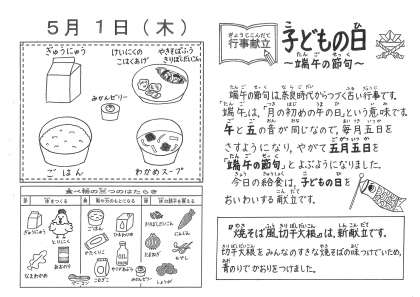 5月1日（木）
ぎゅうにゅう
けいにくの
こはくあげ
やきそばふう
きりぼしだいこん
みかんゼリー
ごはん
わかめスープ
食べ物の三つのはたらき
ぎゅうにゅう
とりにく
わかめ
ごはん
かたくりこ
さとう
あぶら
きりぼしだいこん
にんじん
しょうが
ぎょうじこんだて
行事献立
子どもの日
～端午の節句～
端午の節句は、奈良時代からつづく古い行事です。
「端午」は、「月の初めの午の日」という意味です。
午と五の音が同じなので、毎月五日を
さすようになり、やがて五月五日を
「端午の節句」とよぶようになりました。
今日の給食は、子どもの日を
おいわいする献立です。
"焼そば風切干大根"は、新献立です。
切干大根をみんなのすきな焼そばの味つけでいため、
青のりでかおりをつけました。